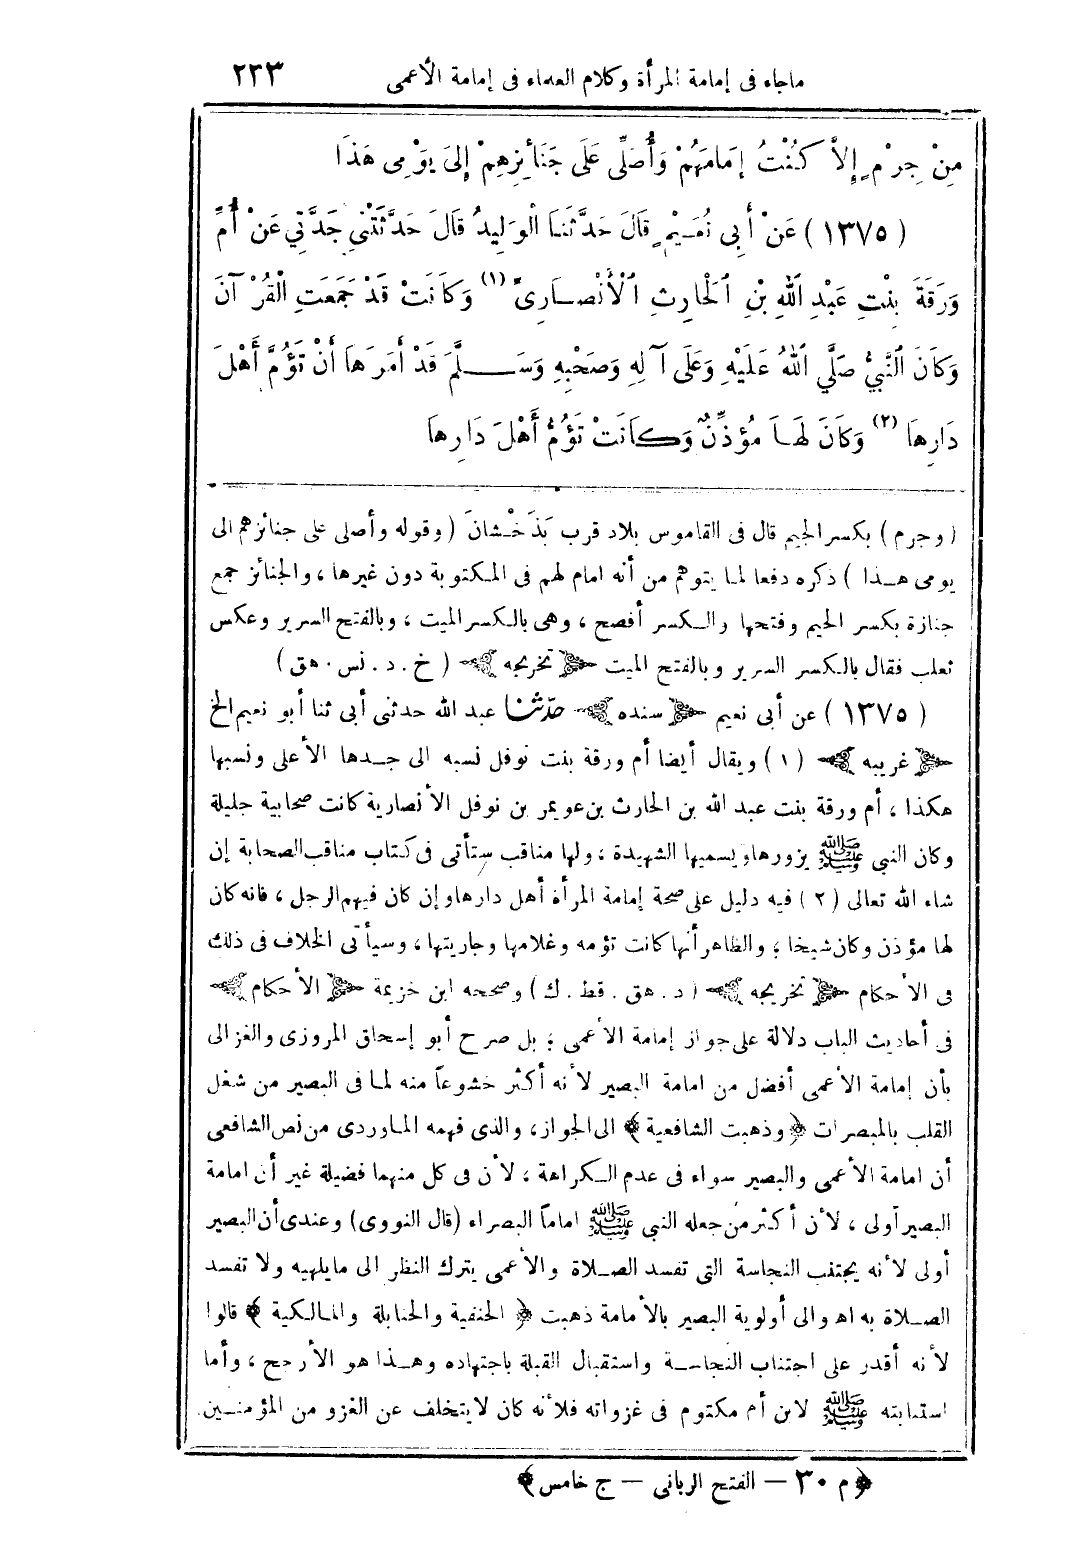 ماجاء فى إمامة المرأة وكلام العلماء فى إمامة الأعمى ٢٣٣
مِنْ جِرْمٍ إِلاَّ كُنْتُ إِمَامَهُمْ وَأُصَلِّى عَلَى جَنَائِزِهِمْ إِلَى يَوْمِى هَذَا
(١٣٧٥) عَنْ أَبِى نُعَيْمٍ قَالَ حَدَّثَنَا الْوَلِيدُ قَالَ حَدَّثَتْنِى جَدَّتِي عَنْ أُمِّ
وَرَقَةَ بِنْتِ عَبْدِ اللهِ بْنِ الْحَارِثِ الْأَنْصَارِىِّ (١) وَكَانَتْ قَدْ جَمَعَتِ الْقُرْآنَ
وَكَانَ النَّبِيُّ صَلَّي اللهُ عَلَيْهِ وَعَلَى آلِهِ وَصَحْبِهِ وَسَلَّمَ قَدْ أَمَرَهَا أَنْ تَؤُمَّ أَهْلَ
دَارِهَا (٢) وَكَانَ لَهَا مُؤَذِّنٌ وَكَانَتْ تَؤُمُّ أَهْلَ دَارِهَا
(وجرم) بكسر الجيم قال فى القاموس بلاد قرب بَذَخْشانَ (وقوله وأصلى على جنائزهم الى
يومى هذا) ذكره دفعا لما يتوهم من أنه امام لهم فى المكتوبة دون غيرها، والجنائز جمع
جنازة بكسر الجيم وفتحها والكسر أفصح، وهى بالكسر الميت، وبالفتح السرير وعكس
ثعلب فقال بالكسر السرير وبالفتح الميت ﴿تخريجه﴾ (خ. د. نس. هق)
(١٣٧٥) عن أبى نعيم ﴿سنده﴾ حدّثنا عبد الله حدثنى أبى ثنا أبو نعيم الخ
﴿غريبه﴾ (١) ويقال أيضا أم ورقة بنت نوفل نسبه الى جدها الأعلى ونسبها
هكذا، أم ورقة بنت عبد الله بن الحارث بن عويمر بن نوفل الأنصارية كانت صحابية جليلة
وكان النبى ﷺ يزورها ويسميها الشهيدة، ولها مناقب ستأتى فى كتاب مناقب الصحابة إن
شاء الله تعالى (٢) فيه دليل على صحة إمامة المرأة أهل دارها وإن كان فيهم الرجل، فانه كان
لها مؤذن وكان شيخا؛ والظاهر أنها كانت تؤمه وغلامها وجاريتها، وسيأتى الخلاف فى ذلك
فى الأحكام ﴿تخريجه﴾ (د. هق. قط. ك) وصححه ابن خزيمة ﴿الأحكام﴾
فى أحاديث الباب دلالة على جواز إمامة الأعمى؛ بل صرح أبو إسحاق المروزى والغزالى
بأن إمامة الأعمى أفضل من امامة البصير لأنه أكثر خشوعاً منه لما فى البصير من شغل
القلب بالمبصرات ﴿وذهبت الشافعية﴾ الى الجواز، والذى فهمه الماوردى من نص الشافعى
أن امامة الأعمى والبصير سواء فى عدم الكراهة، لأن فى كل منهما فضيلة غير أن امامة
البصير أولى، لأن أكثر من جعله النبى ﷺ اماماً البصراء (قال النووى) وعندى أن البصير
أولى لأنه يجتنب النجاسة التى تفسد الصلاة والأعمى يترك النظر الى ما يلهيه ولا تفسد
الصلاة به اه والى أولوية البصير بالأمامة ذهبت ﴿الحنفية والحنابلة والمالكية﴾ قالوا
لأنه أقدر على اجتناب النجاسة واستقبال القبلة باجتهاده وهذا هو الأرجح، وأما
استنابته ﷺ لابن أم مكتوم فى غزواته فلأنه كان لايتخلف عن الغزو من المؤمنين
﴿م ٣٠ — الفتح الربانى — ج خامس﴾